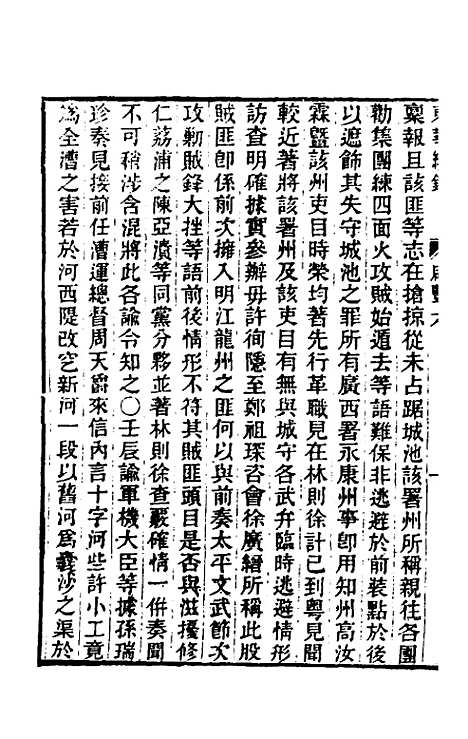 稟報且該匪等志在搶掠從未占踞城池該署州所稱親往各團
勸集團練四面火攻賊始遁去等語難保非逃避於前裝點於後
以遮飾其失守城池之罪所有廣西署永康州事卽用知州高汝
霖曁該州吏目時榮均著先行革職見在林則徐計已到粵見聞
較近著將該署州及該吏目有無與城守各武弁臨時逃避情形
訪查明確據實參辦毋許徇隱至鄭祖琛咨會徐廣縉所稱此股
賊匪卽係前次擁入明江龍州之匪何以與前奏太平文武節次
攻勦賊錄大挫等語前後情形不符其賊匪頭目是否與滋擾修
仁荔浦之陳亞潰等同黨分夥並著林則徐查覈確情一併奏聞
不可稍涉含混將此各諭令知之〇壬辰諭軍機大臣等據孫瑞
珍奏見接前任漕運總督周天爵來信內言十字河些許小工竟
爲全漕之害若於河西隄改空新河一段以舊河爲囊沙之渠於